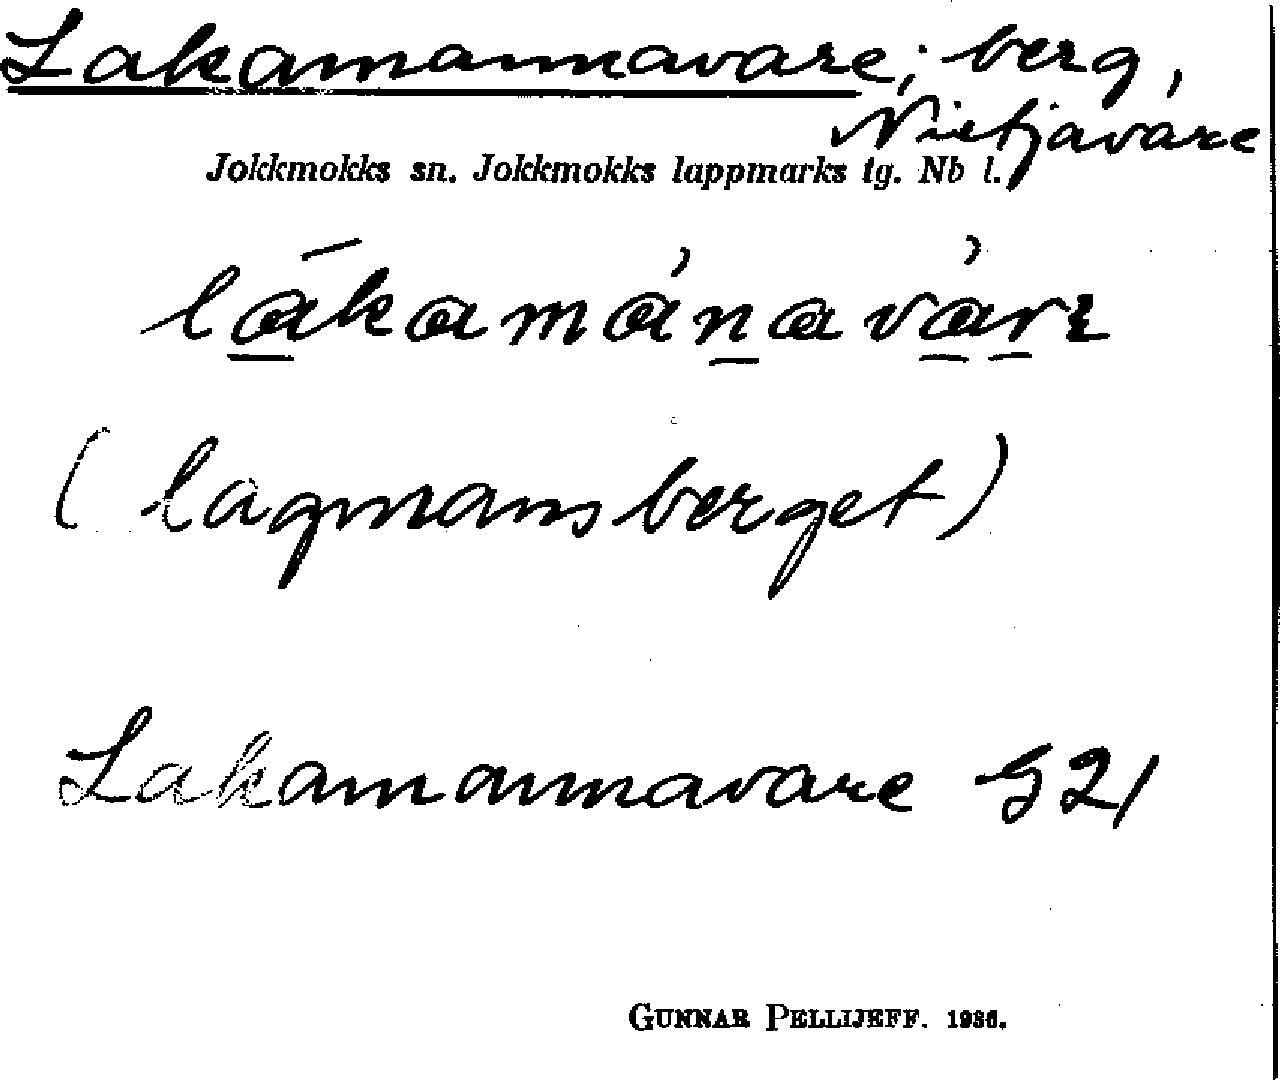 Lakamannavare; berg,
Nietjavare
Jokkmokks sn. Jokkmokks lappmarks tg. Nb l.
lākamánavárɛ
(lagmansberget)
Lakamannavare G21
GUNNAR PELLIJEFF. 1936.